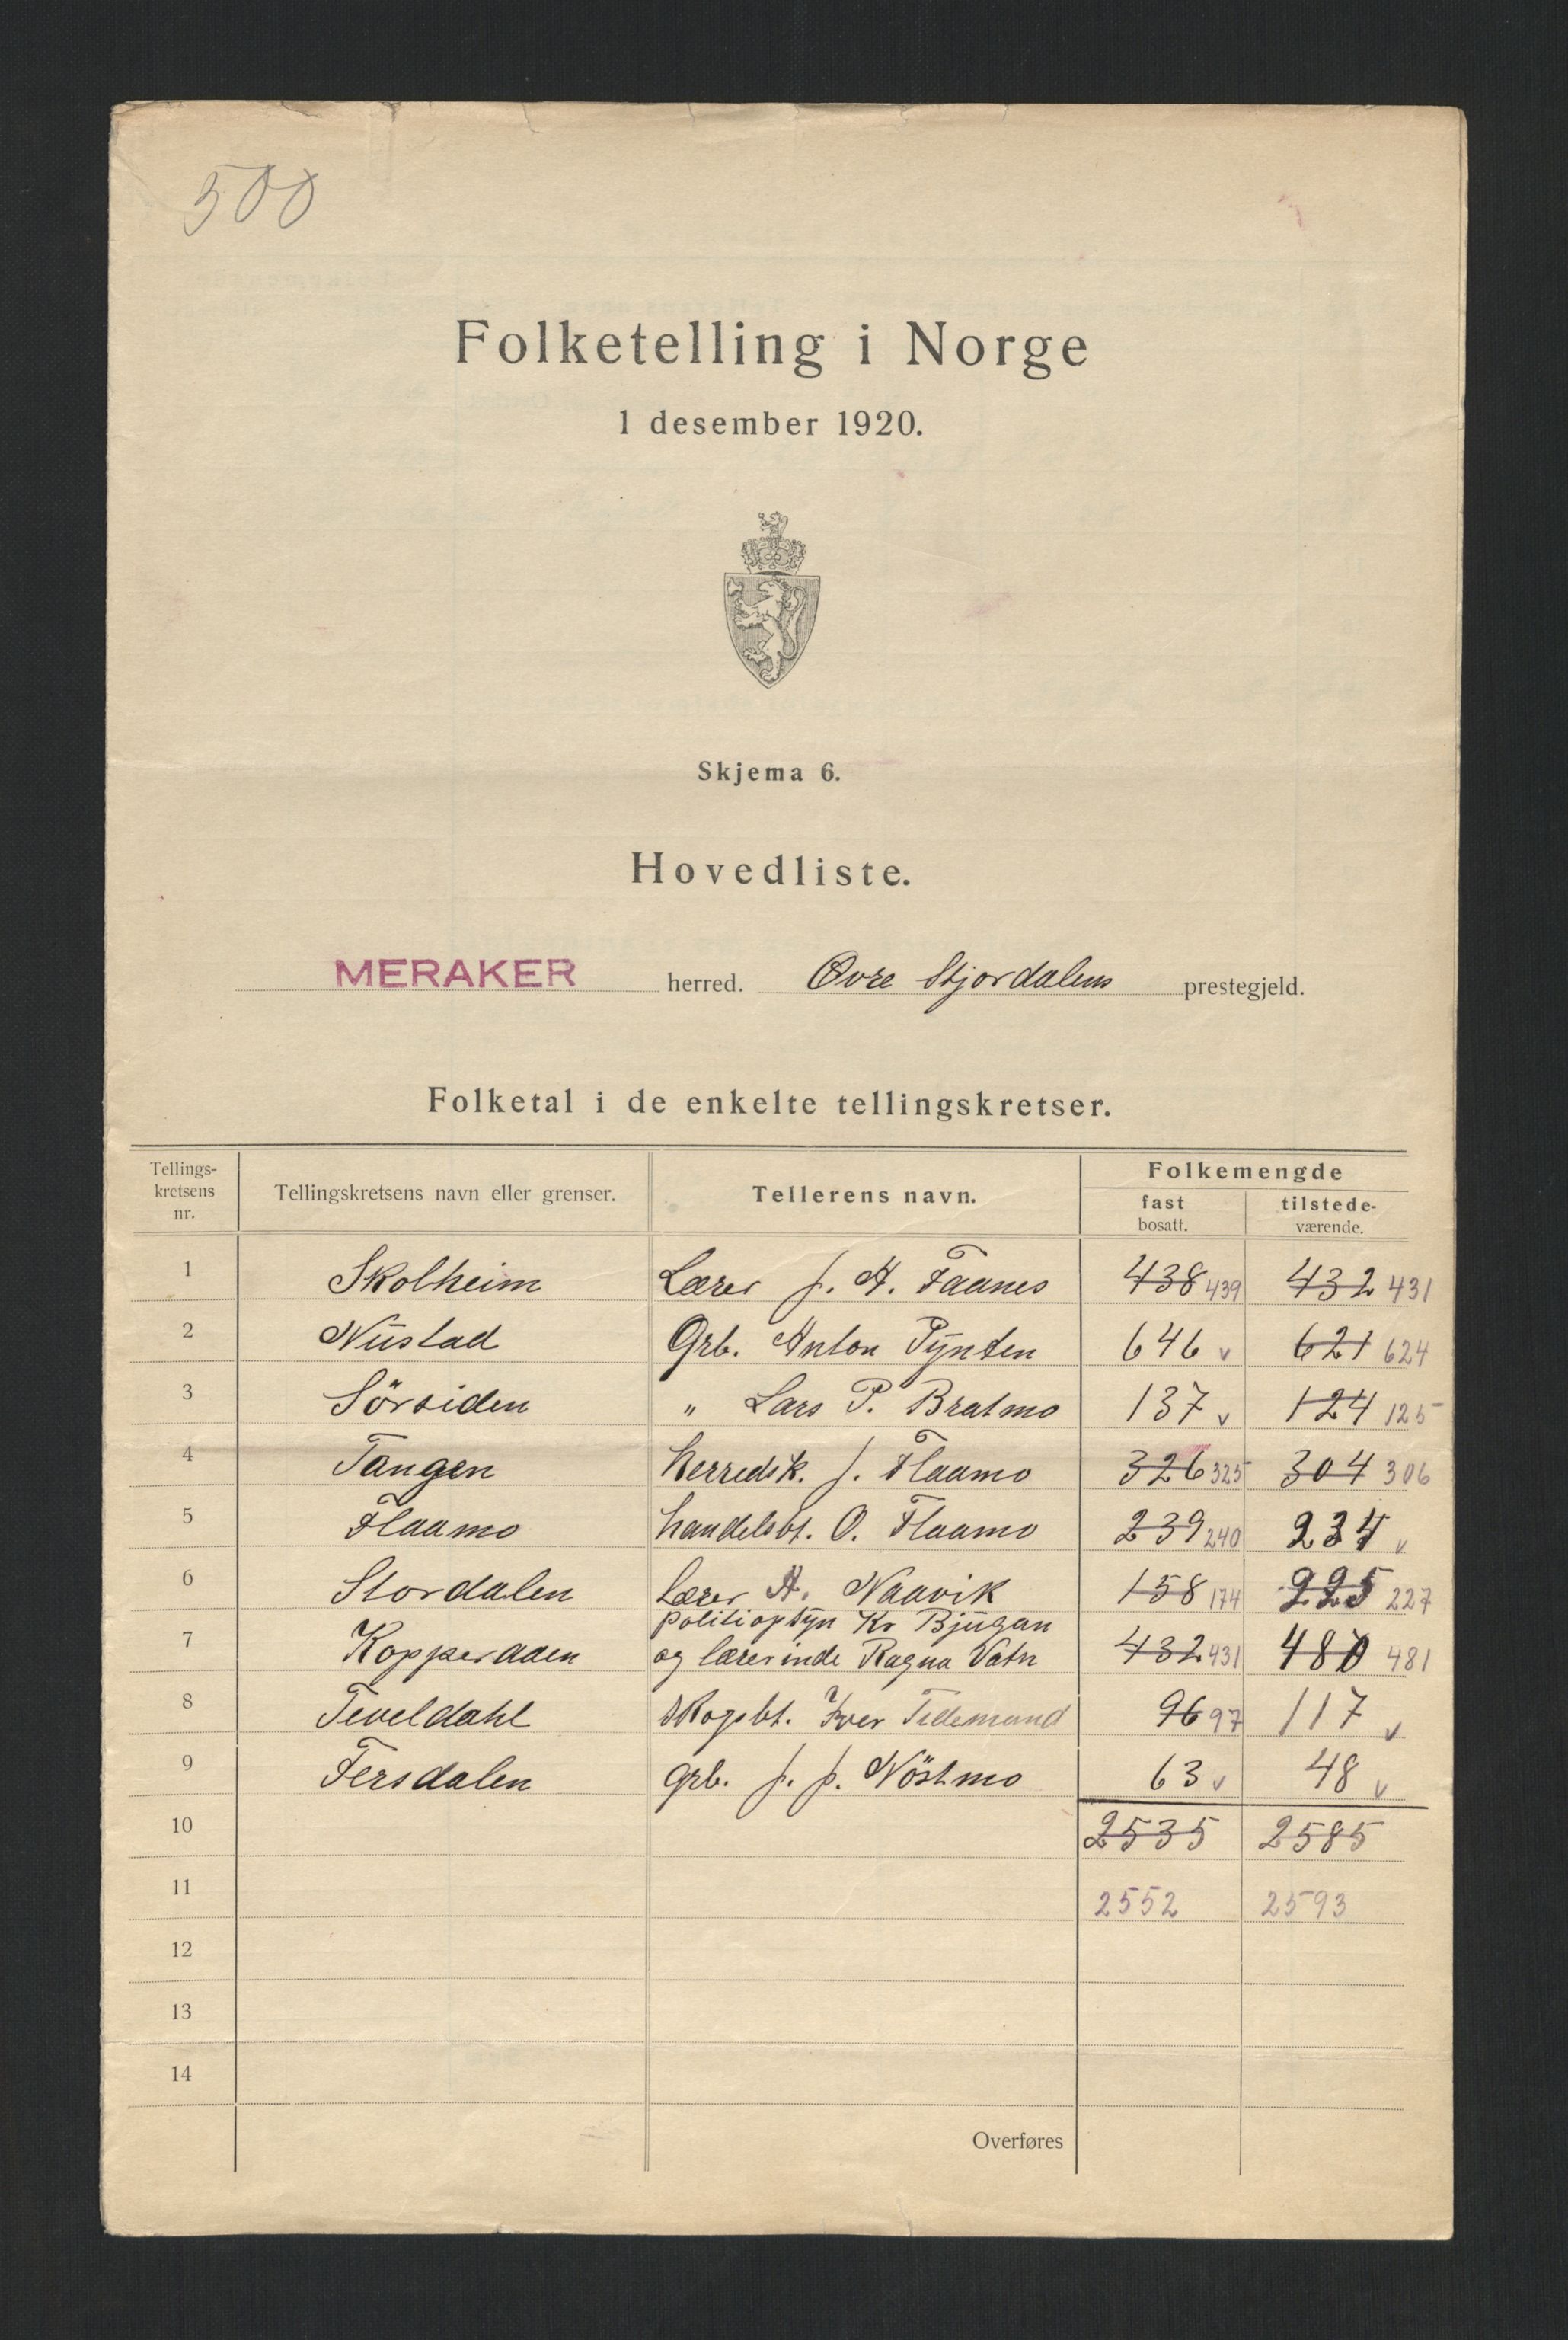 500
Folketelling i Norge
1 desember 1920.
Skjema 6.
Hovedliste.
MERAKER herred. Øvre Stjordalens prestegjeld.
Folketal i de enkelte tellingskretser.
Tellings-
kretsens
nr.
Tellingskretsens navn eller grenser.
Tellerens navn.
Folkemengde
fast
bosatt.
tilstede-
værende.
1 Skolheim Lærer J. A. Faanes 438 439 432 431
2 Nustad Grb. Anton Pynten 646 v 621 624
3 Sörsiden " Lars P. Bratmo 137 v 124 125
4 Tangen Herredsk. J. Flaamo 326 325 304 306
5 Flaamo Handelsbt. O. Flaamo 239 240 234 v
6 Stordalen Lærer A. Naavik 158 174 225 227
politiopsyn Kr Bjugan
7 Kopperaaen og lærerinde Ragna Vatn 432 431 480 481
8 Teveldahl Skogsbt. Iver Tidemand 96 97 117 v
9 Fersdalen Grb. J. J. Nöstmo 63 v 48 v
10 2535 2585
11 2552 2593
12
13
14
Overføres